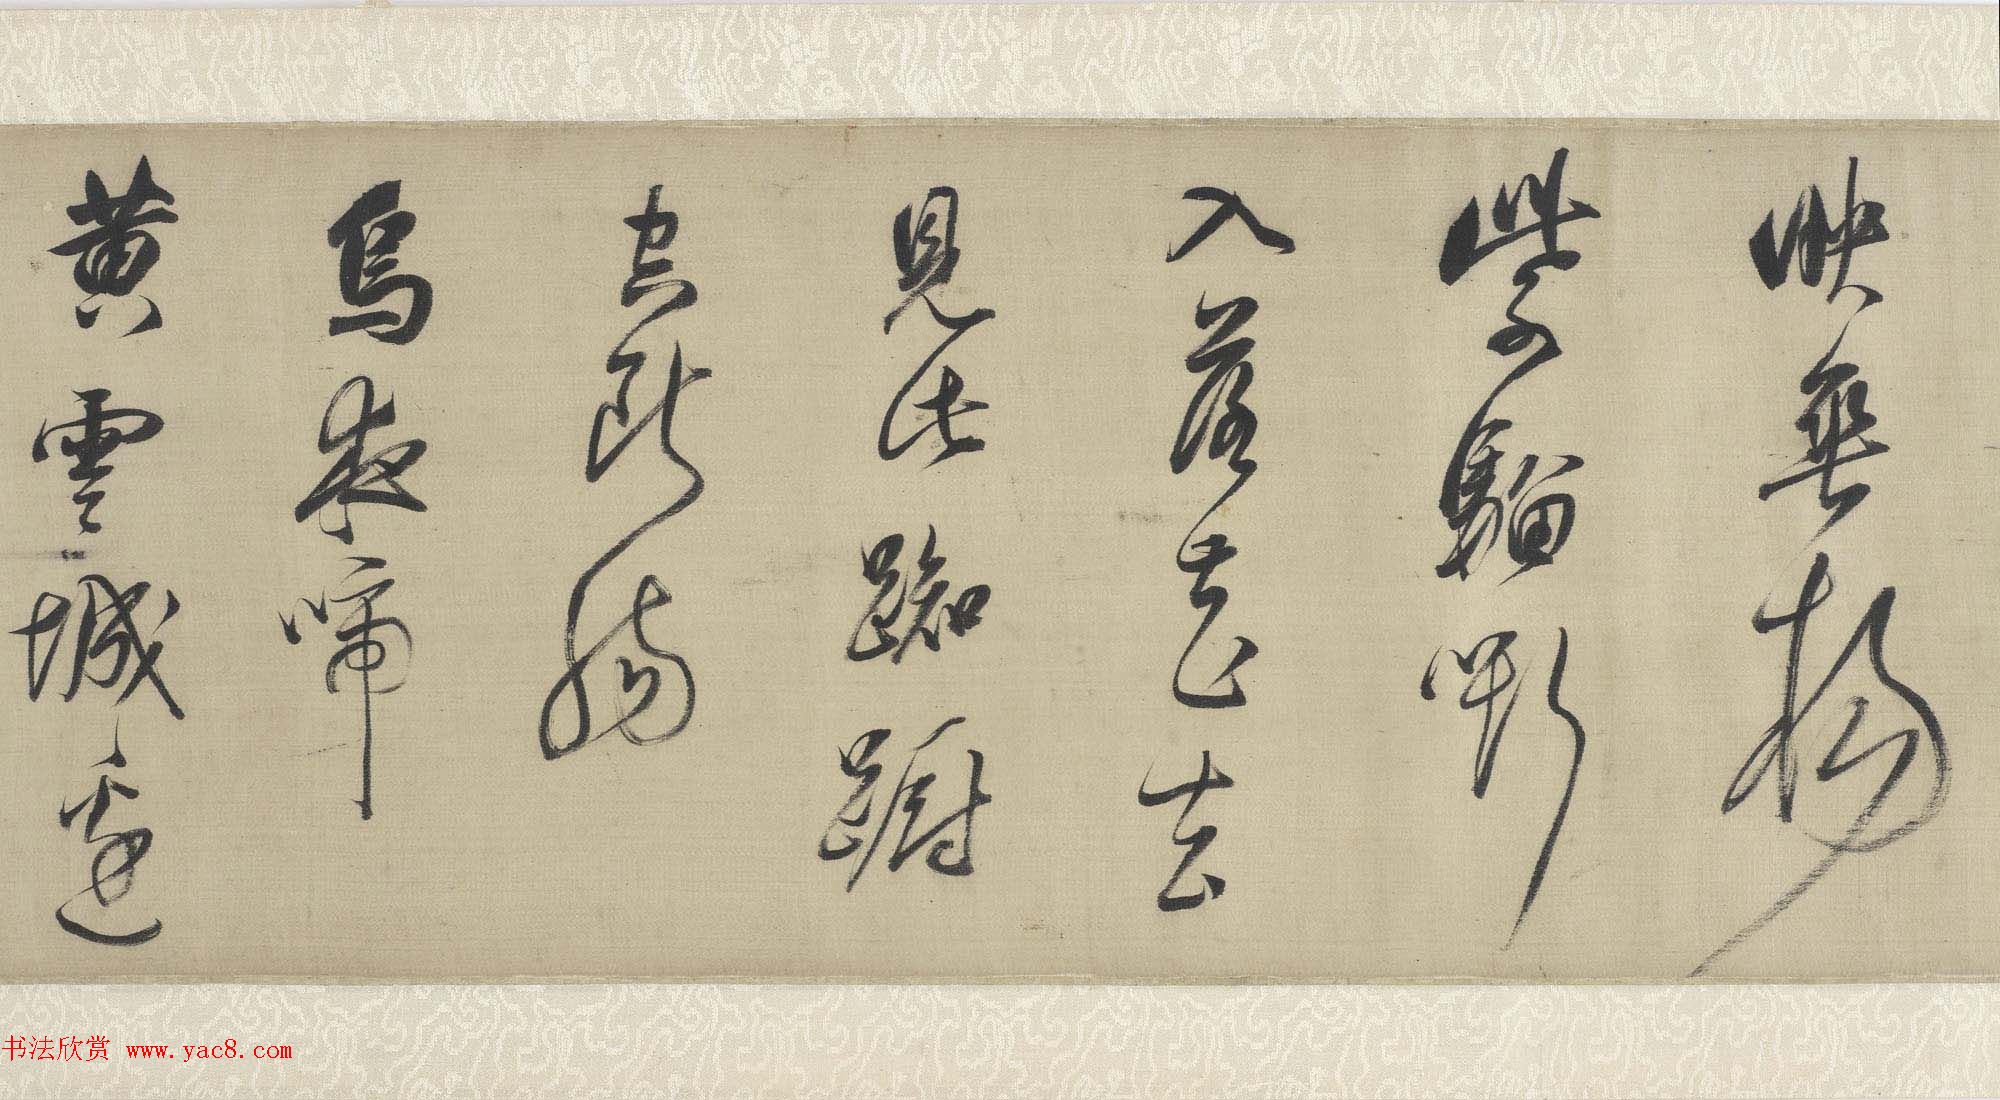 映垂楊
紫騮嘶
入落花去
見此踟躕
空斷腸
烏夜啼
黃雲城邊
书法欣赏 www.yac8.com